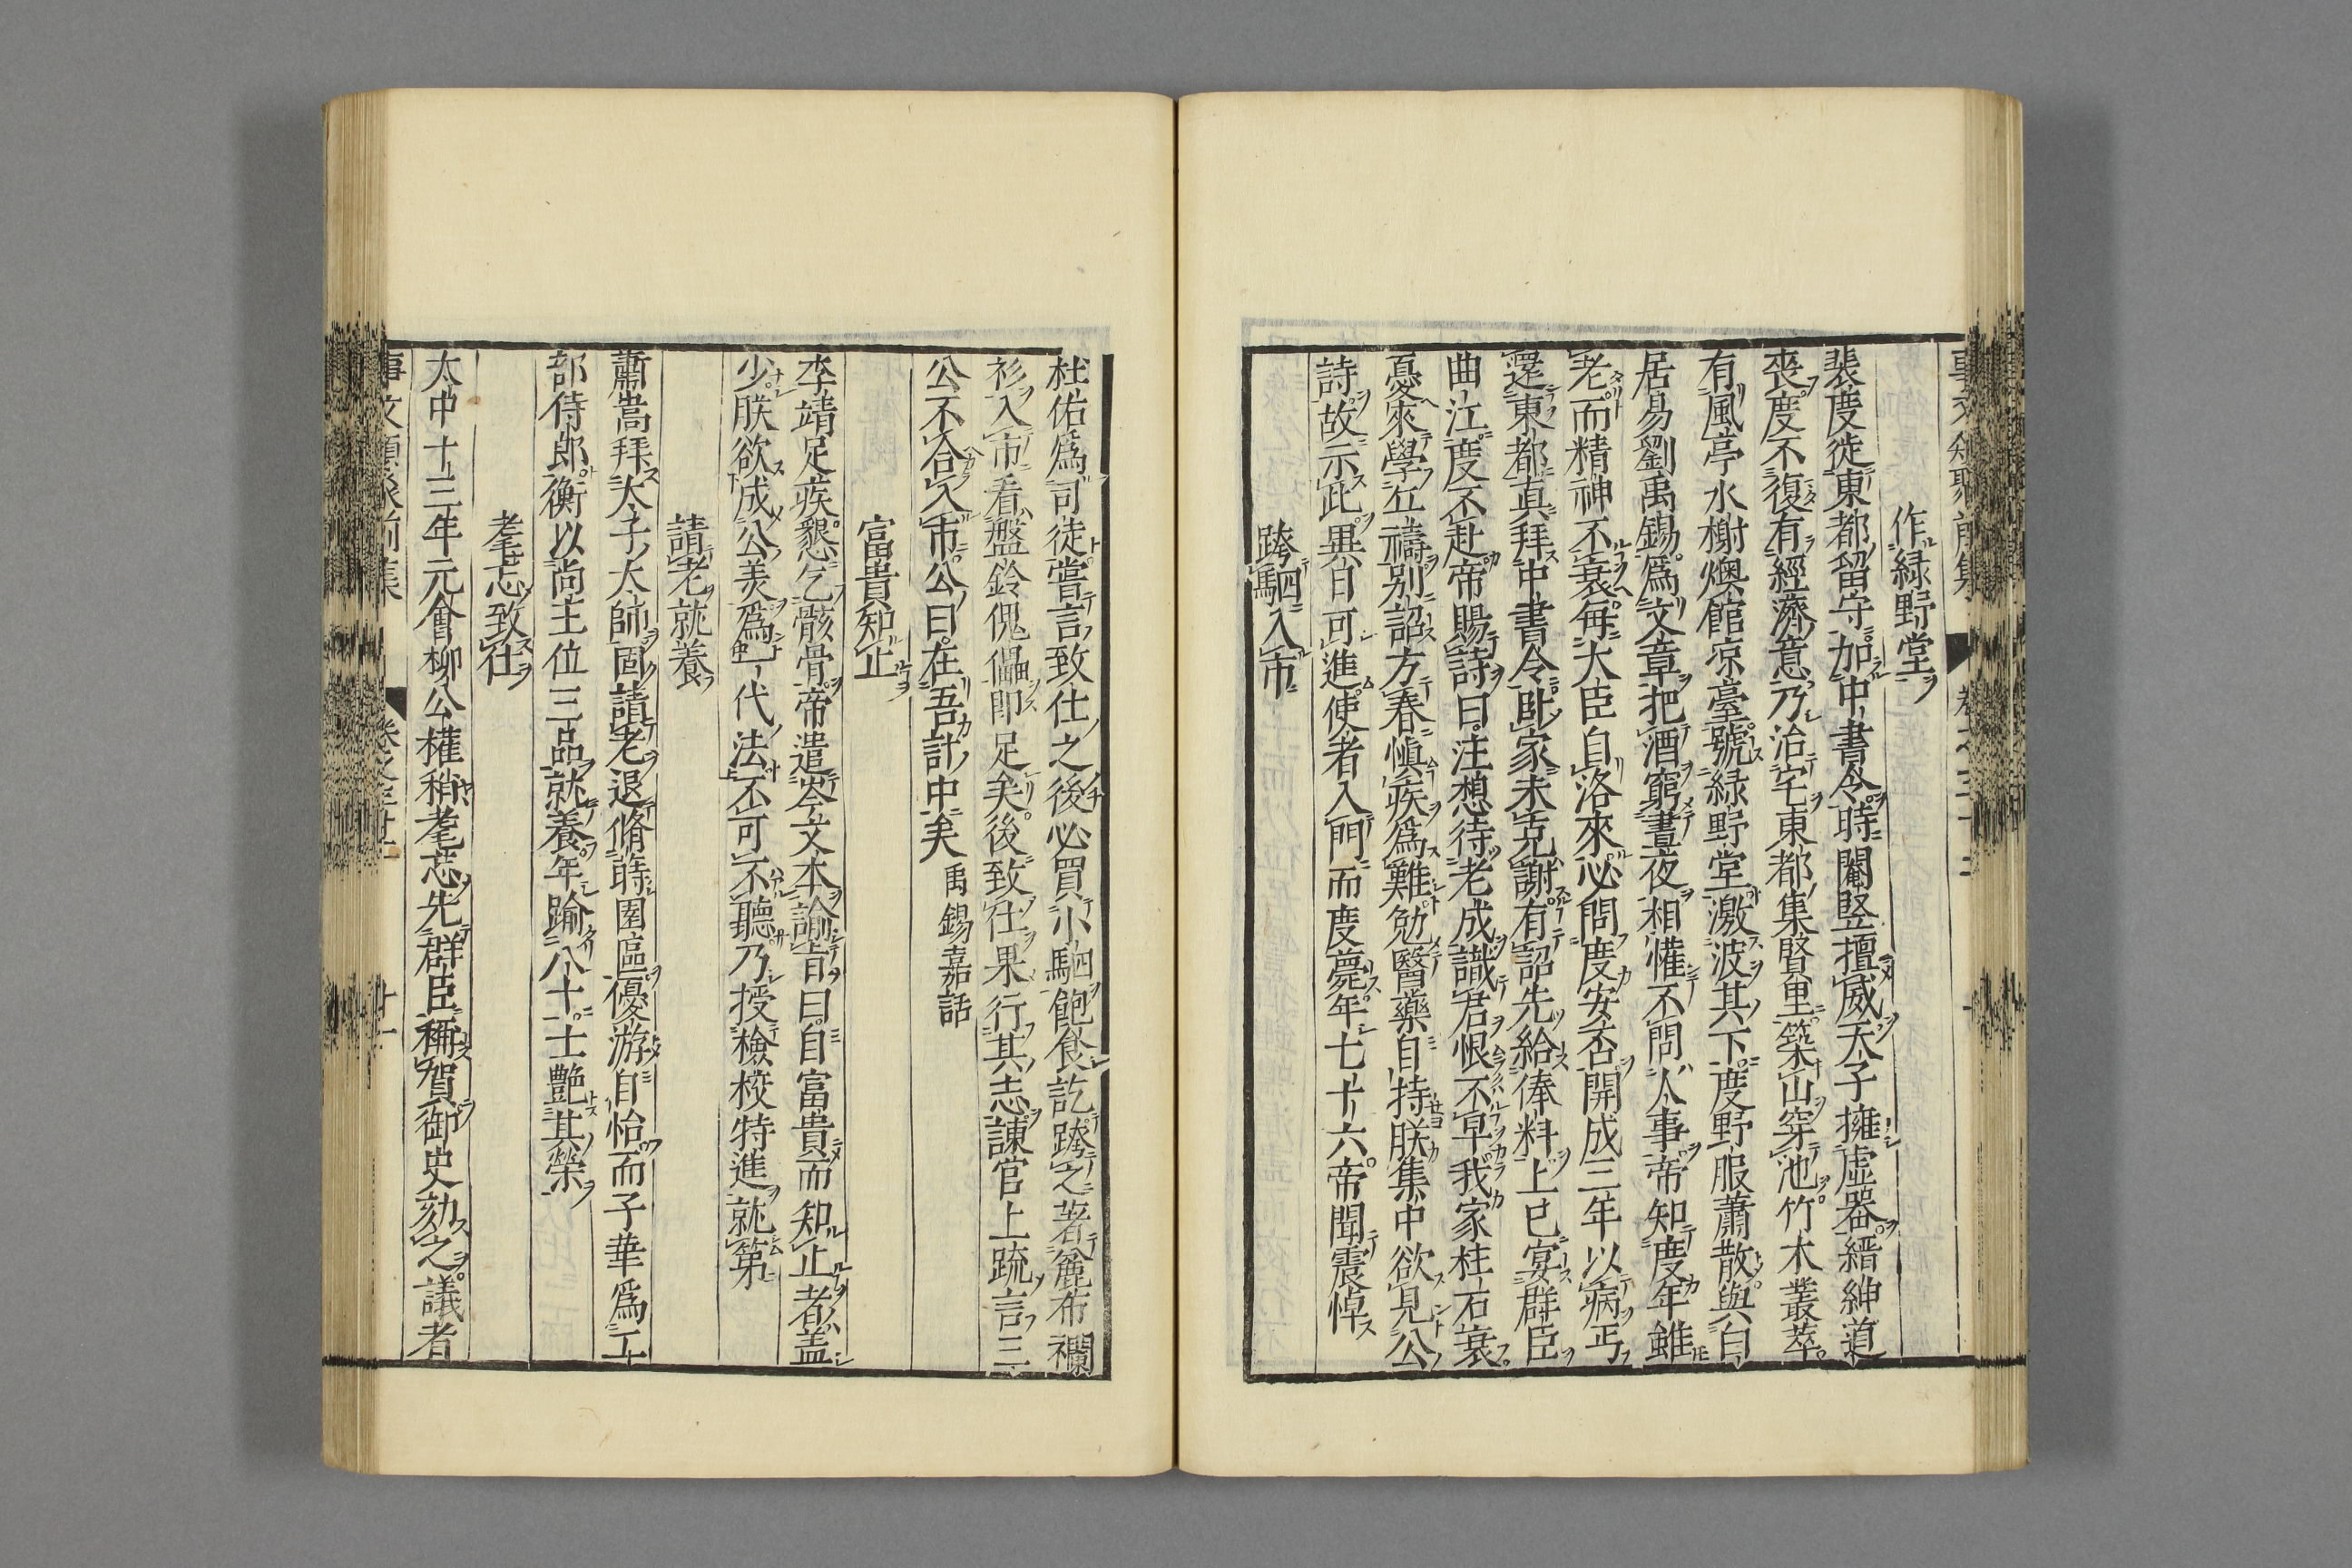 作緑野堂
裴度徙東都留守加中書令時閹竪擅威天子擁虛器縉紳道
喪度不復有經濟意乃治宅東都集賢里築山穿池竹木叢萃
有風亭水榭燠館凉臺號緑野堂激波其下度野服蕭散與白
居易劉禹錫爲文章把酒窮晝夜相懽不問人事帝知度年雖
老而精神不衰每大臣自洛來必問度安否開成三年以病丐
還東都真拜中書令臥家未克謝有詔先給俸料上巳宴群臣
曲江度不赴帝賜詩曰注想待老成識君恨不早我家柱石衰
憂來學丘禱别詔方春愼疾爲難勉醫藥自持朕集中欲見公
詩故示此異日可進使者入門而度薨年七十六帝聞震悼
跨駟入市
杜佑爲司徒嘗言致仕之後必買小駟飽食訖跨之著麁布襴
衫入市看盤鈴傀儡即足矣後致仕果行其志諫官上䟽言三
公不合入市公曰在吾計中矣 禹錫嘉話
富貴知止
李靖足疾懇乞骸骨帝遣岑文本諭旨曰自富貴而知止者盖
少朕欲成公美爲一代法不可不聽乃授檢校特進就第
請老就養
蕭嵩拜太子太師固請老退脩蒔園區優游自怡而子華爲工
部侍郎衡以尚主位三品就養年踰八十士艶其榮
耄忘致仕
大中十三年元會柳公權稍耄忘先群臣稱賀御史劾之議者
事文類聚前集